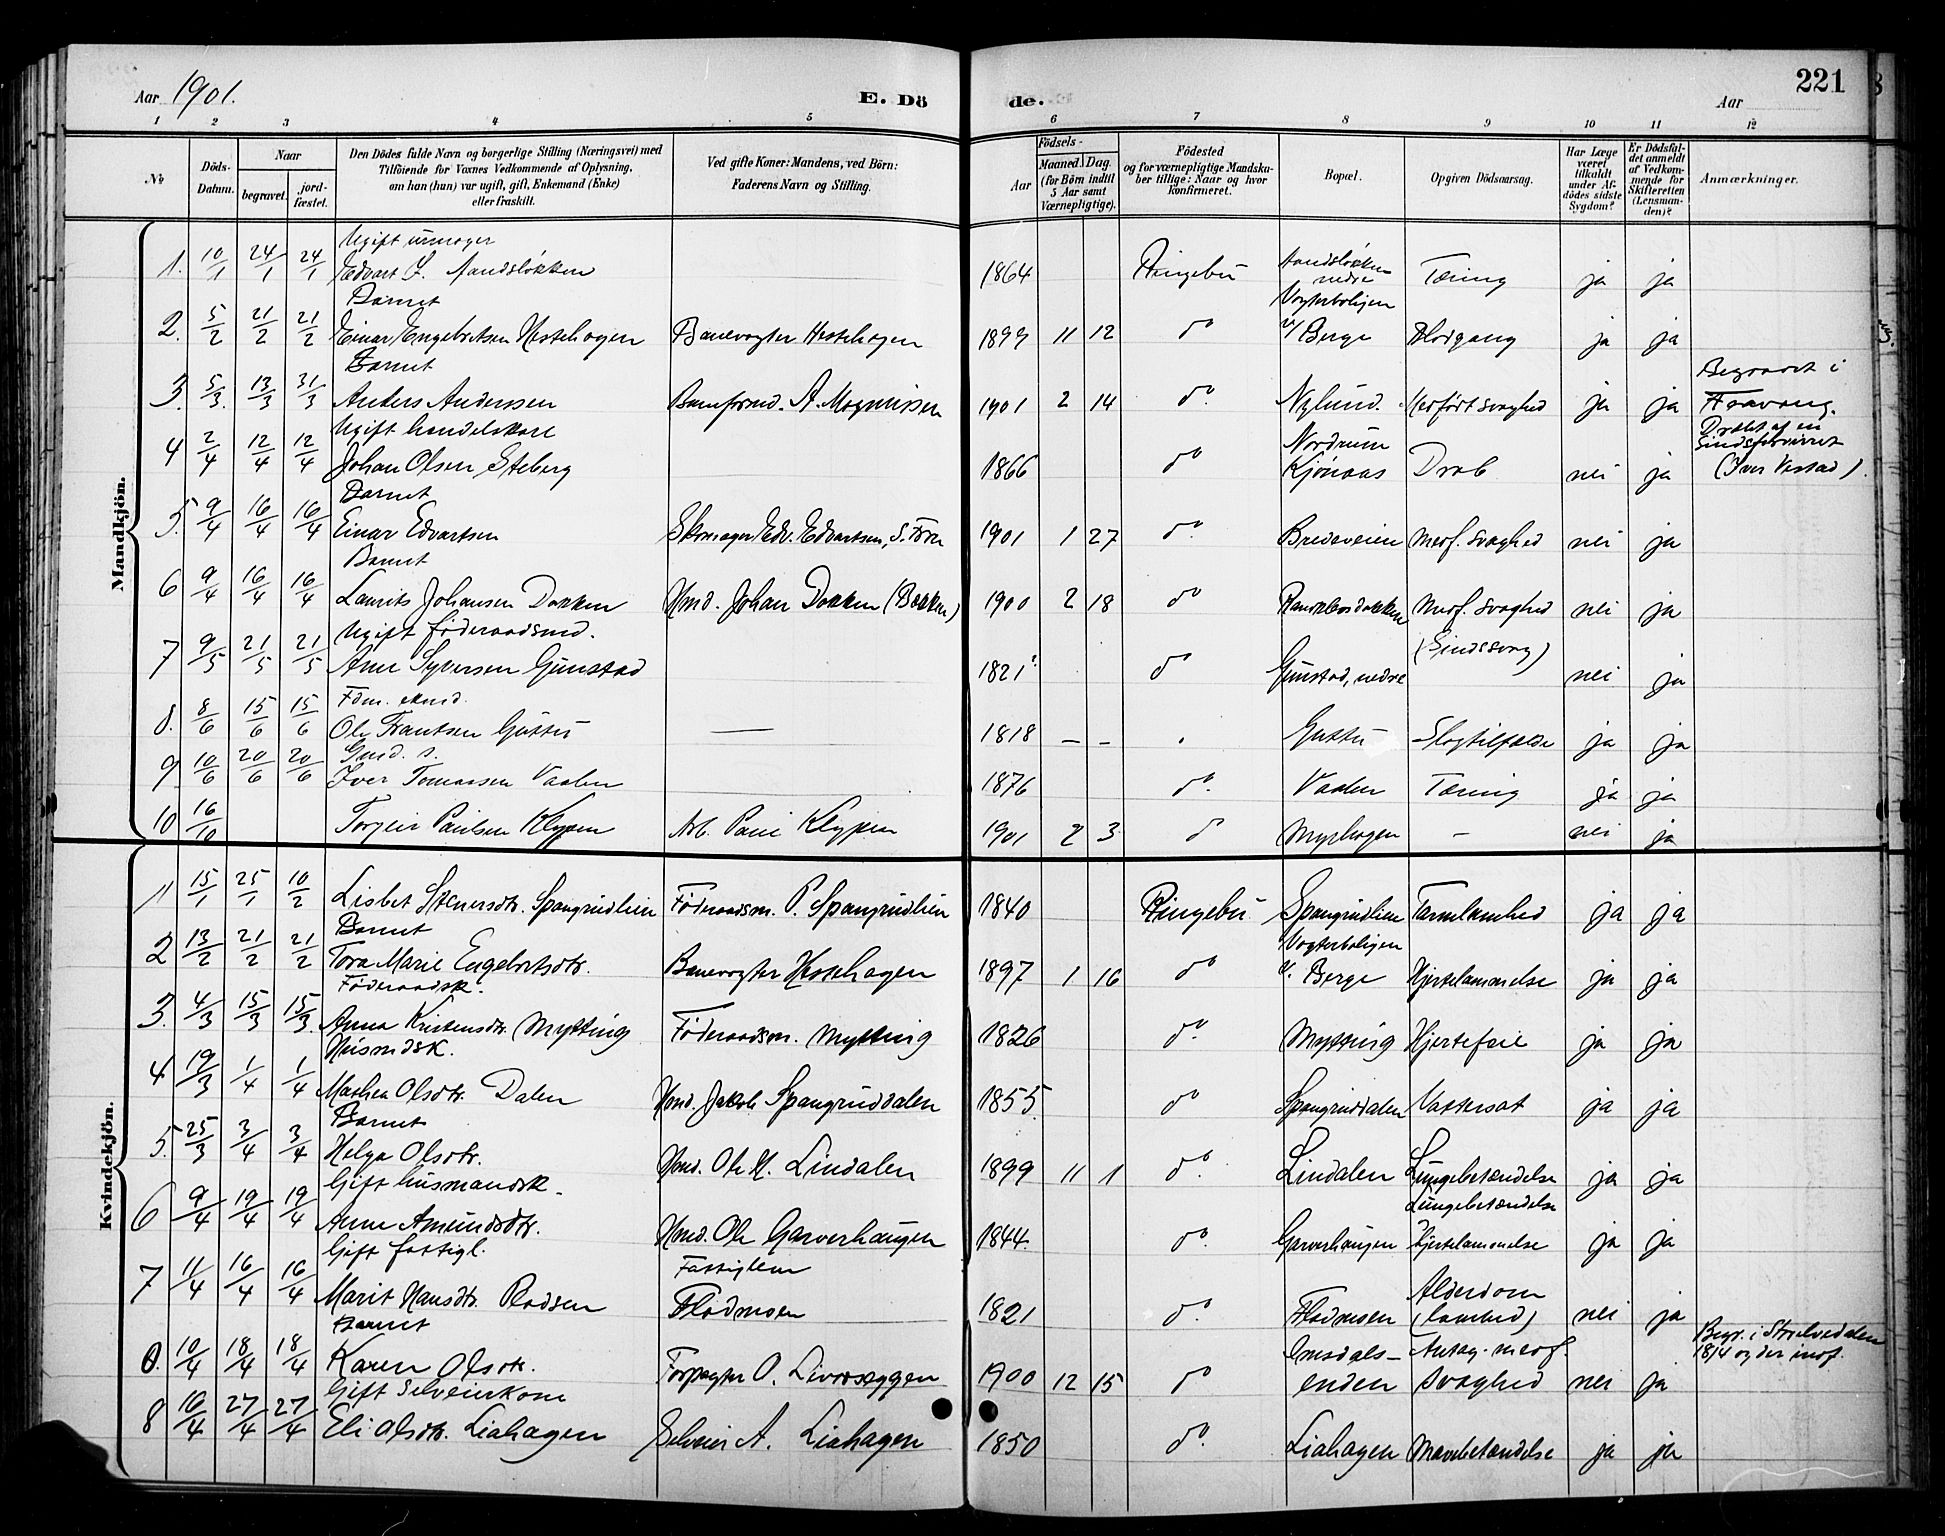 221
Aar 1901.
E. Dö de.
Aar
1 2 3 4 5 6 7 8 9 10 11 12
No
Döds-Datum.
Naar
begravet.
jord-fæstet.
Den Dödes fulde Navn og borgerlige Stilling (Næringsvei) med
Tilföiende for Voxnes Vedkommende af Oplysning,
om han (hun) var ugift, gift, Enkemand (Enke)
eller fraskilt.
Ved gifte Koner: Mandens, ved Börn:
Faderens Navn og Stilling.
Födsels-
Aar
Maaned. Dag.
(for Börn indtil
5 Aar samt
Værnepligtige).
Födested
og for værnepligtige Mandska-
ber tillige: Naar og hvor
konfirmeret.
Bopæl.
Opgiven Dödsaarsag.
Har Læge
været
tilkaldt
under Af-
dödes sidste
Sygdom?
Er Dödsfal-
det anmeldt
af Vedkom-
mende for
Skifteretten
(Lensman-
den)?
Anmærkninger.
Mandkjön.
Ugift urmager
1. 10/1 24/1 24/1 Edvart Aandsløkken 1864 Ringebu Aandsløkken nedre Tæring ja ja
Barnet Vogterboligen
2. 5/2 21/2 21/2 Einar Engebretsen Hestehagen Banevogter Hestehagen 1899 11 12 do v/ Berge Blodgang ja ja
Barnet Begravet i
3. 5/3 13/3 31/3 Anders Anderssen Baneformd. A. Magnussen 1901 2 14 do. Nylund. Medfødt svaghed ja ja Faavang.
Ugift handelskarl Nordrum Dræbt af en sindsforvirret
4 2/4 12/4 12/4 Johan Olsen Steberg 1866 do Kjønaas Drab nei ja (Iver Vestad).
Barnet
5. 9/4 16/4 16/4 Einar Edvartsen Skomager Edv. Edvartsen, S. Fron 1901 1 27 do. Bredeveien Medf. svaghed nei ja
Barnet
6 9/4 16/4 16/4 Laurits Johansen Dokken Hmd. Johan Dokken (Bakken) 1900 2 18 do Randklevdokken Medf. svaghed nei ja
Ugift føderaadsmd. (Sindssvag)
7 9/5 21/5 21/5 Arne Syversen Gunstad 1821 do Gunstad, nedre nei ja
Fdm. ekmd.
8. 8/6 15/6 15/6 Ole Frantsen Guttu — 1818 — — Guttu Slagtilfælde ja ja
Gmd. s.
9. 10/6 20/6 20/6 Iver Tomassen Vaalen 1876 do. Vaalen Tæring ja ja
10 16/10 Torgeir Paulsen Klypen Arb. Paul Klypen 1901 2 3 do Myrhagen — nei ja
Kvindekjön.
1 15/1 25/1 10/2 Lisbet Stenersdtr. Spangrudlien Føderaadsm. P. Spangrudlien 1840 Ringebu Spangrudlien Tarmlamhed ja ja
Barnet Vogterboligen
2 13/2 21/2 21/2 Tora Marie Engebretsdtr. Banevogter Hestehagen 1897 1 16 do v. Berge Hjertelammelse ja ja
Føderaadsk.
3. 4/3 15/3 15/3 Anna Kristensdtr. Mytting Føderaadsm. Mytting 1826 do. Mytting Hjertefeil ja ja
Husmdsk.
4 19/3 1/4 1/4 Mathea Olsdtr. Dalen Hmd. Jakob Spangruddalen 1855. do Spangruddalen Vattersot ja ja
Barnet
5. 25/3 3/4 3/4 Helga Olsdtr. Hmd. Ole H. Lindalen 1899 11 1 do. Lindalen Lungebetændelse ja ja
Gift husmandsk. Lungebetændelse
6 9/4 19/4 19/4 Anne Amundsdtr. Hmd. Ole Garverhaugen 1844. do. Garverhaugen Hjertelammelse ja ja
Gift fattigl. Fattiglem Alderdom
7 11/4 16/4 16/4 Marit Hansdtr. Rodsen Flodmoen 1821 do. Flodmoen (lamhed) nei ja
Barnet Imsdals- Antag. medf. Begr. i Strelvedalen
0. 10/4 18/4 18/4 Karen Olsdtr. Forpagter O. 1900 12 15 do enden svaghed nei ja 18/4 og der indf.
Gift Selveierkone
8 16/4 27/4 27/4 Eli Olsdtr. Liahagen Selveier A. Liahagen 1850 do. Liahagen Mavebetændelse ja ja